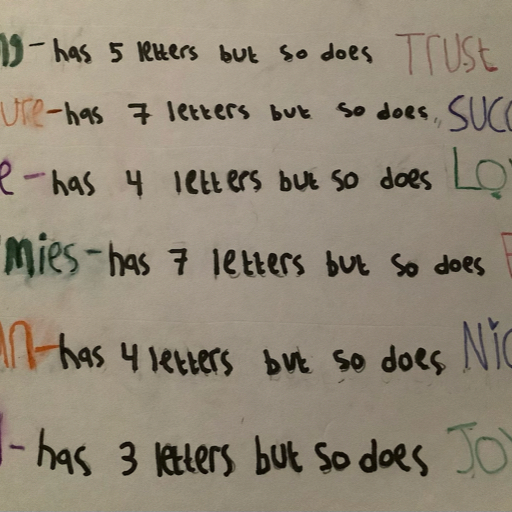 ng-has 5 letters but so does TRUST
ure-has 7 letters but so does, SUCC
e-has 4 letters but so does LO
mies-has 7 letters but so does
n-has 4 letters but so does NIC
-has 3 letters but so does JOY